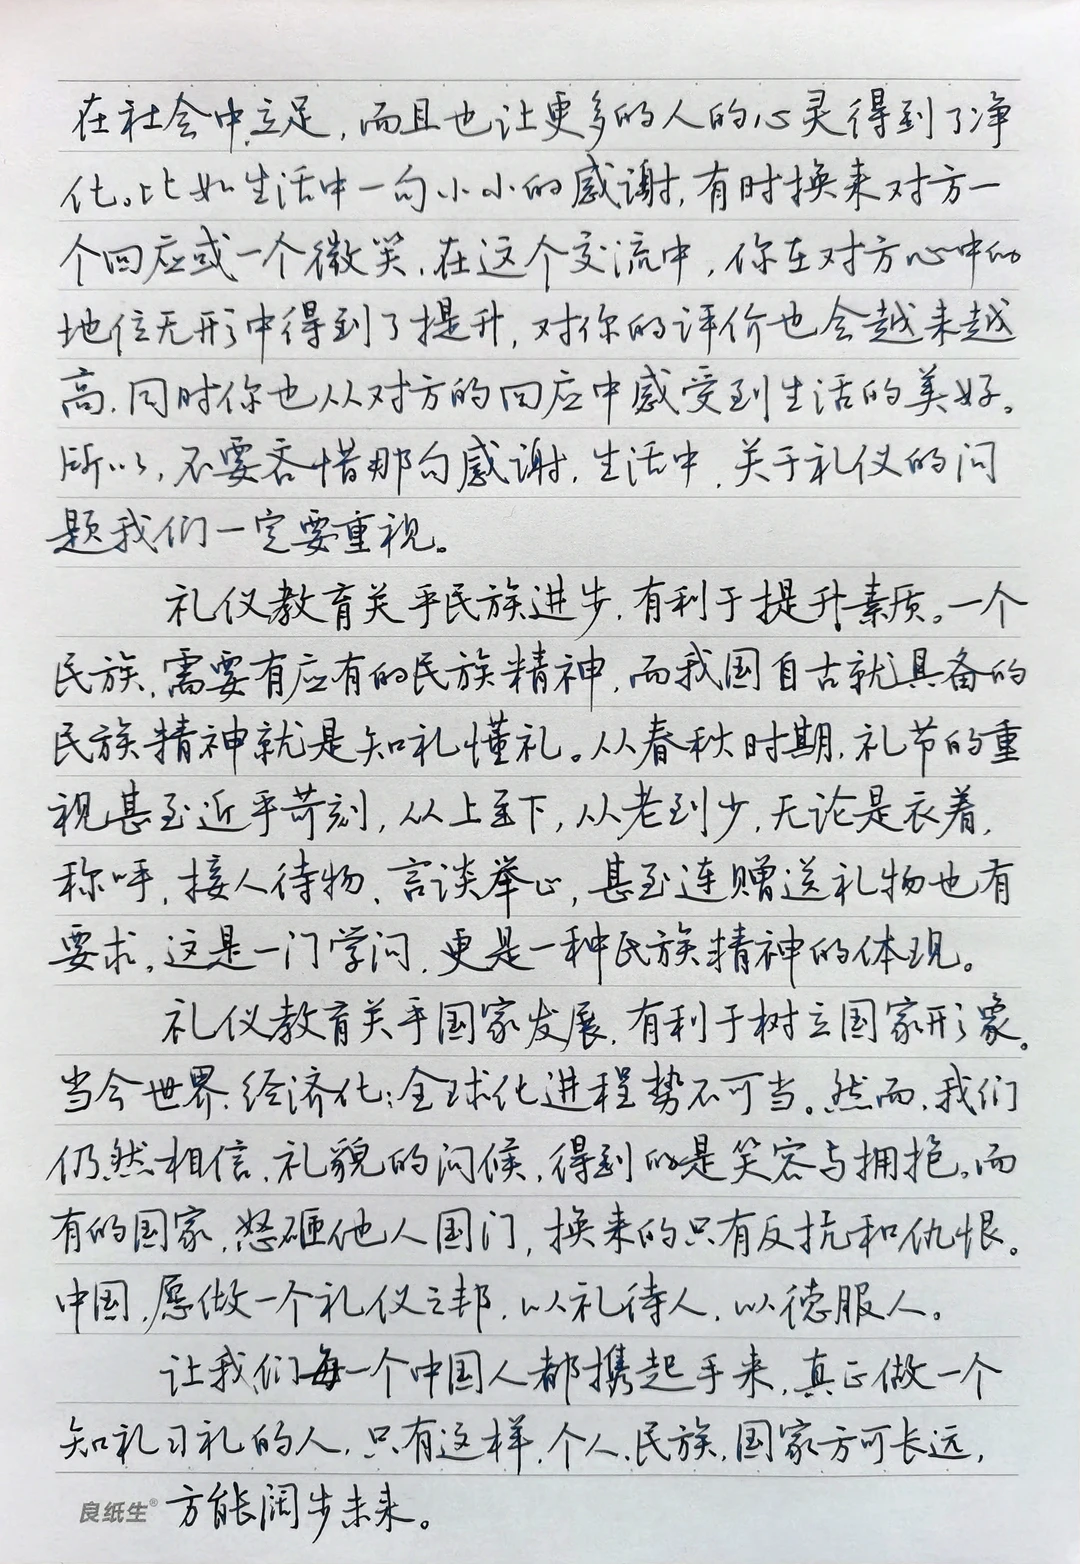 在社会中立足,而且也让更多的人的心灵得到了净
化。比如生活中一句小小的感谢,有时换来对方一
个回应或一个微笑,在这个交流中,你在对方心中的
地位无形中得到了提升,对你的评价也会越来越
高,同时你也从对方的回应中感受到生活的美好。
所以,不要吝惜那句感谢,生活中,关于礼仪的问
题我们一定要重视。
礼仪教育关乎民族进步,有利于提升素质。一个
民族,需要有应有的民族精神,而我国自古就具备的
民族精神就是知礼懂礼。从春秋时期,礼节的重
视甚至近乎苛刻,从上至下,从老到少,无论是衣着,
称呼,接人待物,言谈举止,甚至连赠送礼物也有
要求,这是一门学问,更是一种民族精神的体现。
礼仪教育关乎国家发展,有利于树立国家形象。
当今世界,经济化;全球化进程势不可当。然而,我们
仍然相信,礼貌的问候,得到的是笑容与拥抱。而
有的国家,怒砸他人国门,换来的只有反抗和仇恨。
中国,愿做一个礼仪之邦,以礼待人,以德服人。
让我们每一个中国人都携起手来,真正做一个
知礼习礼的人,只有这样,个人、民族,国家方可长远,
良纸生® 方能阔步未来。